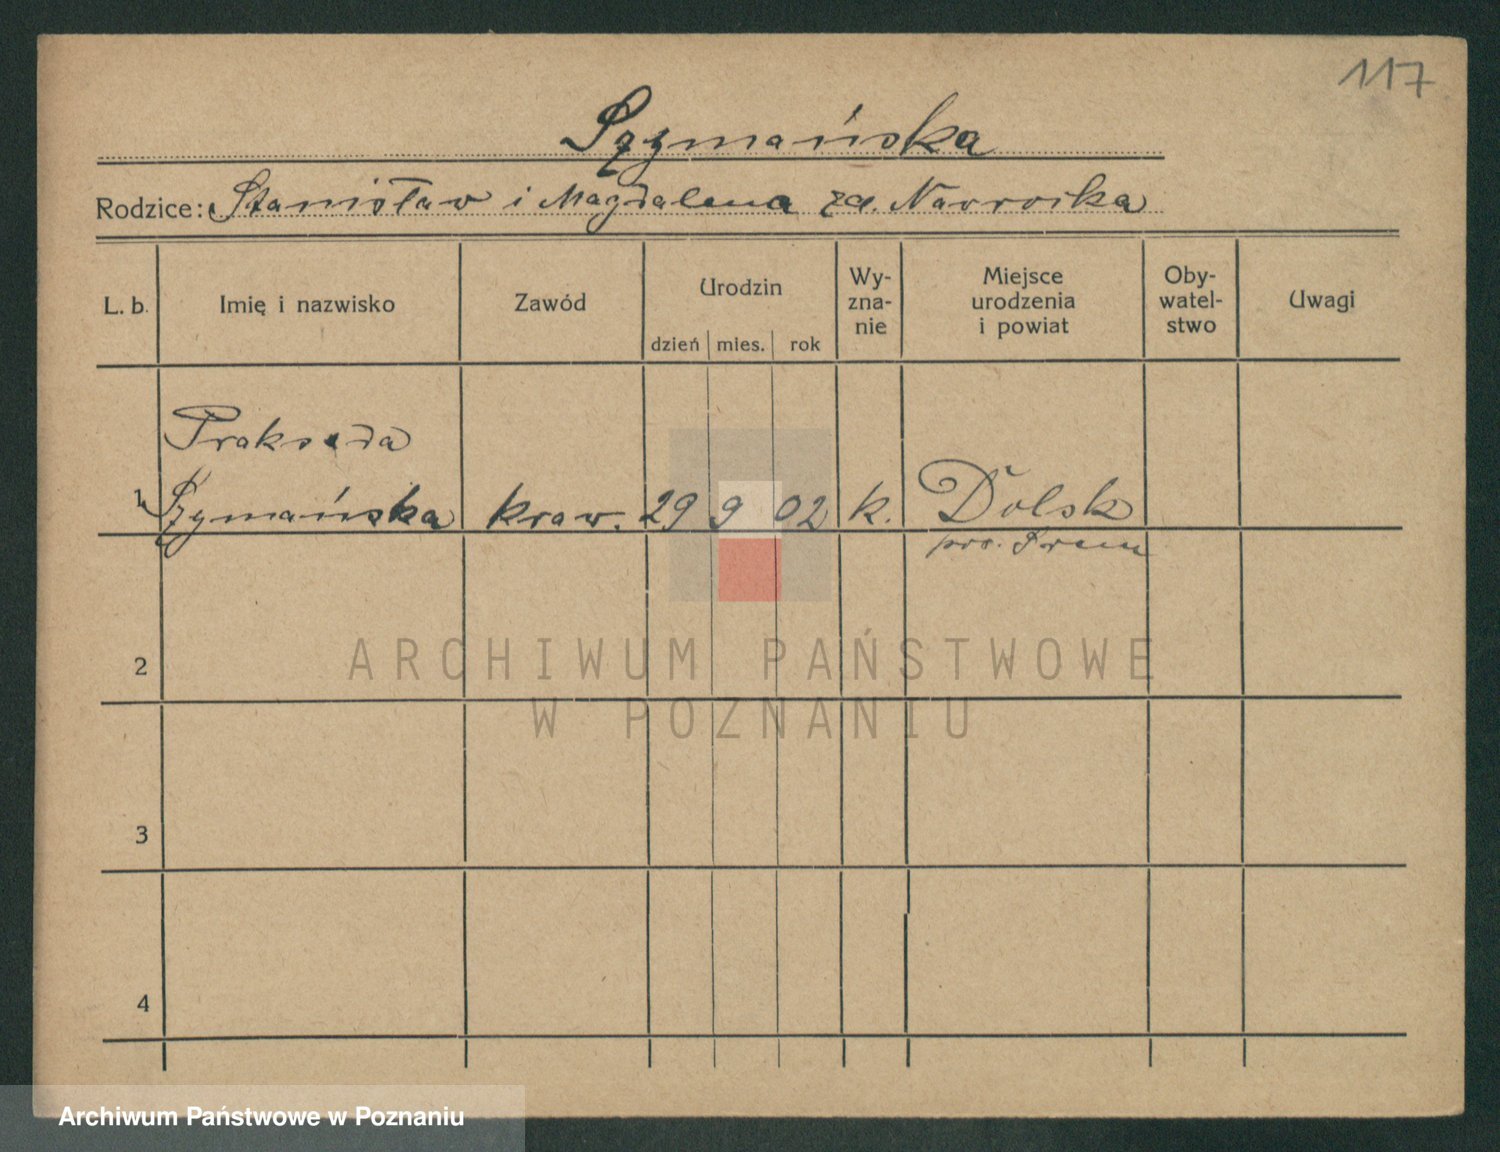 117
Szymańska
Rodzice: Stanisław i Magdalena za. Nawroika
L. b.
Imię i nazwisko
Zawód
Urodzin
dzień mies. rok
Wy-
zna-
nie
Miejsce
urodzenia
i powiat
Oby-
watel-
stwo
Uwagi
Prakseda
1 Szymańska kraw. 29 9 02 k. Dolsk
pow. Śrem
2
3
4
ARCHIWUM PAŃSTWOWE
W POZNANIU
Archiwum Państwowe w Poznaniu